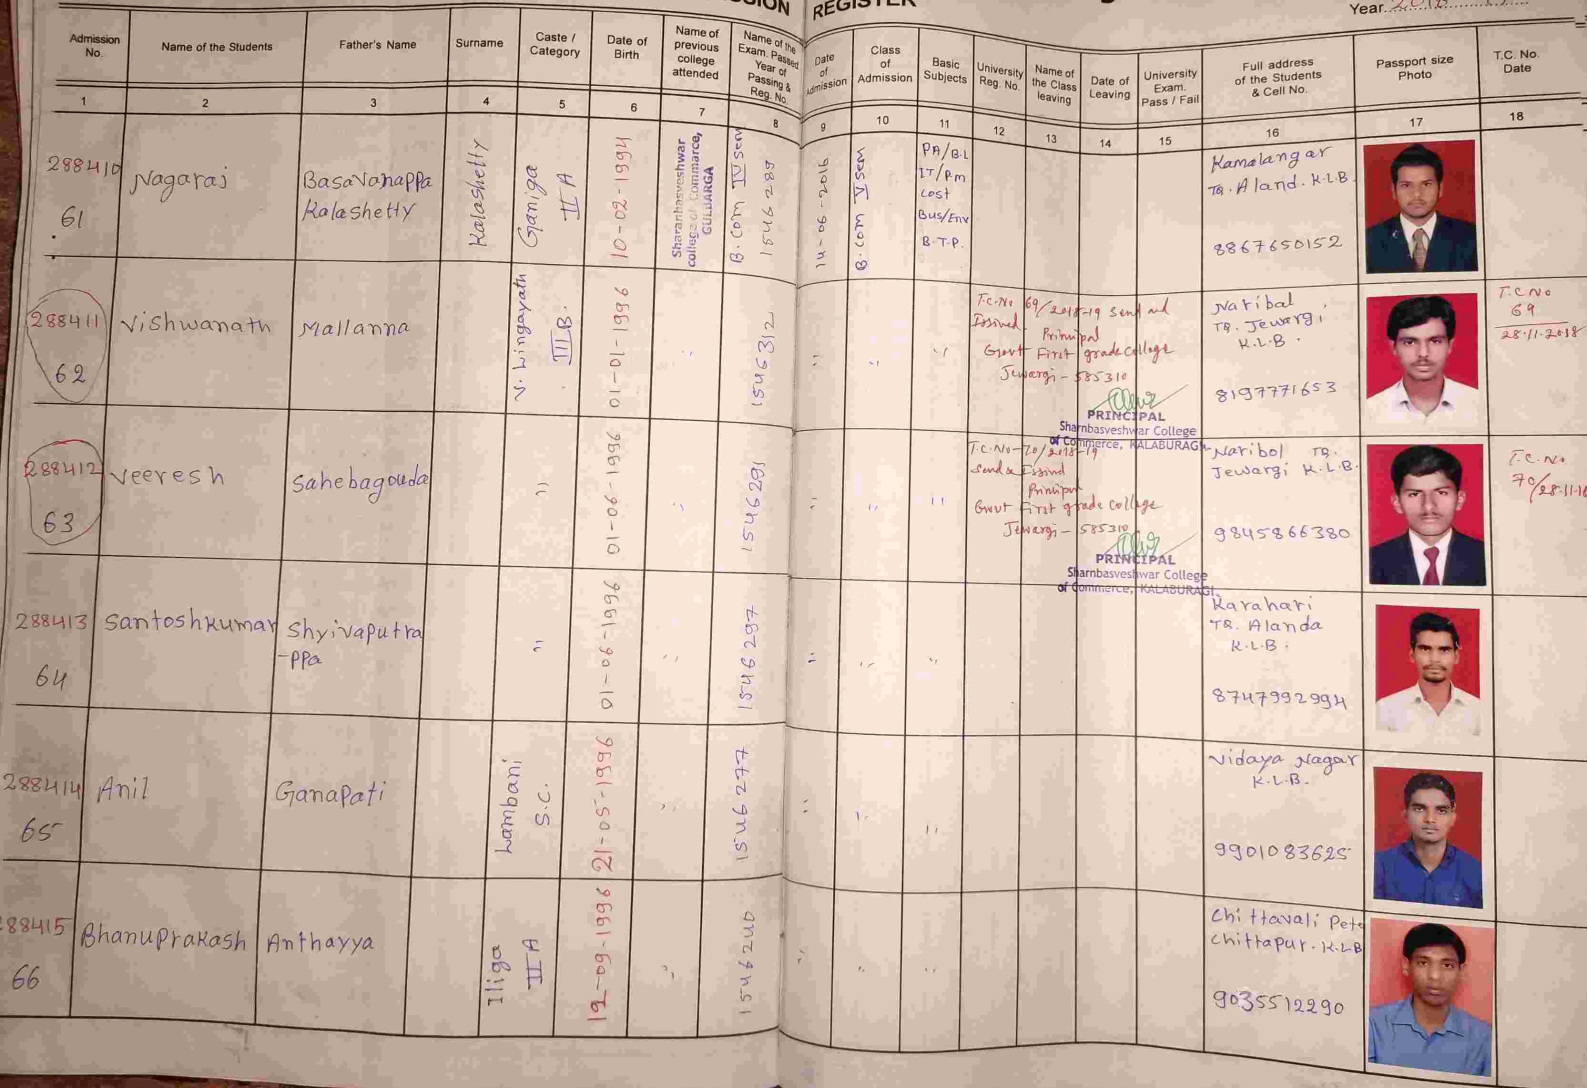 REGISTER
Year 2016
Admission No.
Name of the Students
Father's Name
Surname
Caste / Category
Date of Birth
Name of previous college attended
Name of the Exam. Passed Year of Passing & Reg. No.
Date of Admission
Class of Admission
Basic Subjects
University Reg. No.
Name of the Class leaving
Date of Leaving
University Exam. Pass / Fail
Full address of the Students & Cell No.
Passport size Photo
T.C. No. Date
1 2 3 4 5 6 7 8 9 10 11 12 13 14 15 16 17 18
288410
61
Nagaraj
Basavanappa
Kalashetty
Kalashetty
Ganiga
II A
10-02-1994
Sharanbasveshwar
college of Commerce,
GULBARGA
B.com IV sem
1546289
14-06-2016
B.com V sem
PA/B.L
IT/Pm
Cost
Bus/Env
B.T.P.
Kamalangar
TQ. Aland. K.L.B
8867650152
288411
62
Vishwanath
Mallanna
V. Lingayath
III B.
01-01-1996
"
1546312
"
"
"
T.C.No 69/2018-19 Send and
Issined
Principal
Govt First grade college
Jewargi - 585310
PRINCIPAL
Sharnbasveshwar College
of Commerce, KALABURAGI
Naribal
TQ. Jewargi
K.L.B.
8197771653
T.C No
69
28.11.2018
288412
63
Veeresh
Sahebagouda
"
01-06-1996
"
1546291
"
"
"
T.C.No-70/2018-19
Send & Issind
Principal
Govt First grade college
Jewargi - 585310
PRINCIPAL
Sharnbasveshwar College
of Commerce, KALABURAGI.
Naribol TQ.
Jewargi K.L.B.
9845866380
T.C.No
70/28-11-18
288413
64
Santoshkumar
Shyivaputra
-ppa
"
01-06-1996
"
1546297
"
"
"
Karahari
TQ. Alanda
K.L.B.
8747992994
288414
65
Anil
Ganapati
Lambani
S.C.
21-05-1996
"
1546277
"
"
"
Vidaya Nagar
K.L.B.
9901083625
88415
66
Bhanuprakash
Anthayya
Iliga
II A
19-09-1996
"
1546240
"
"
"
Chittavali Pete
Chittapur. K.L.B
9035512290